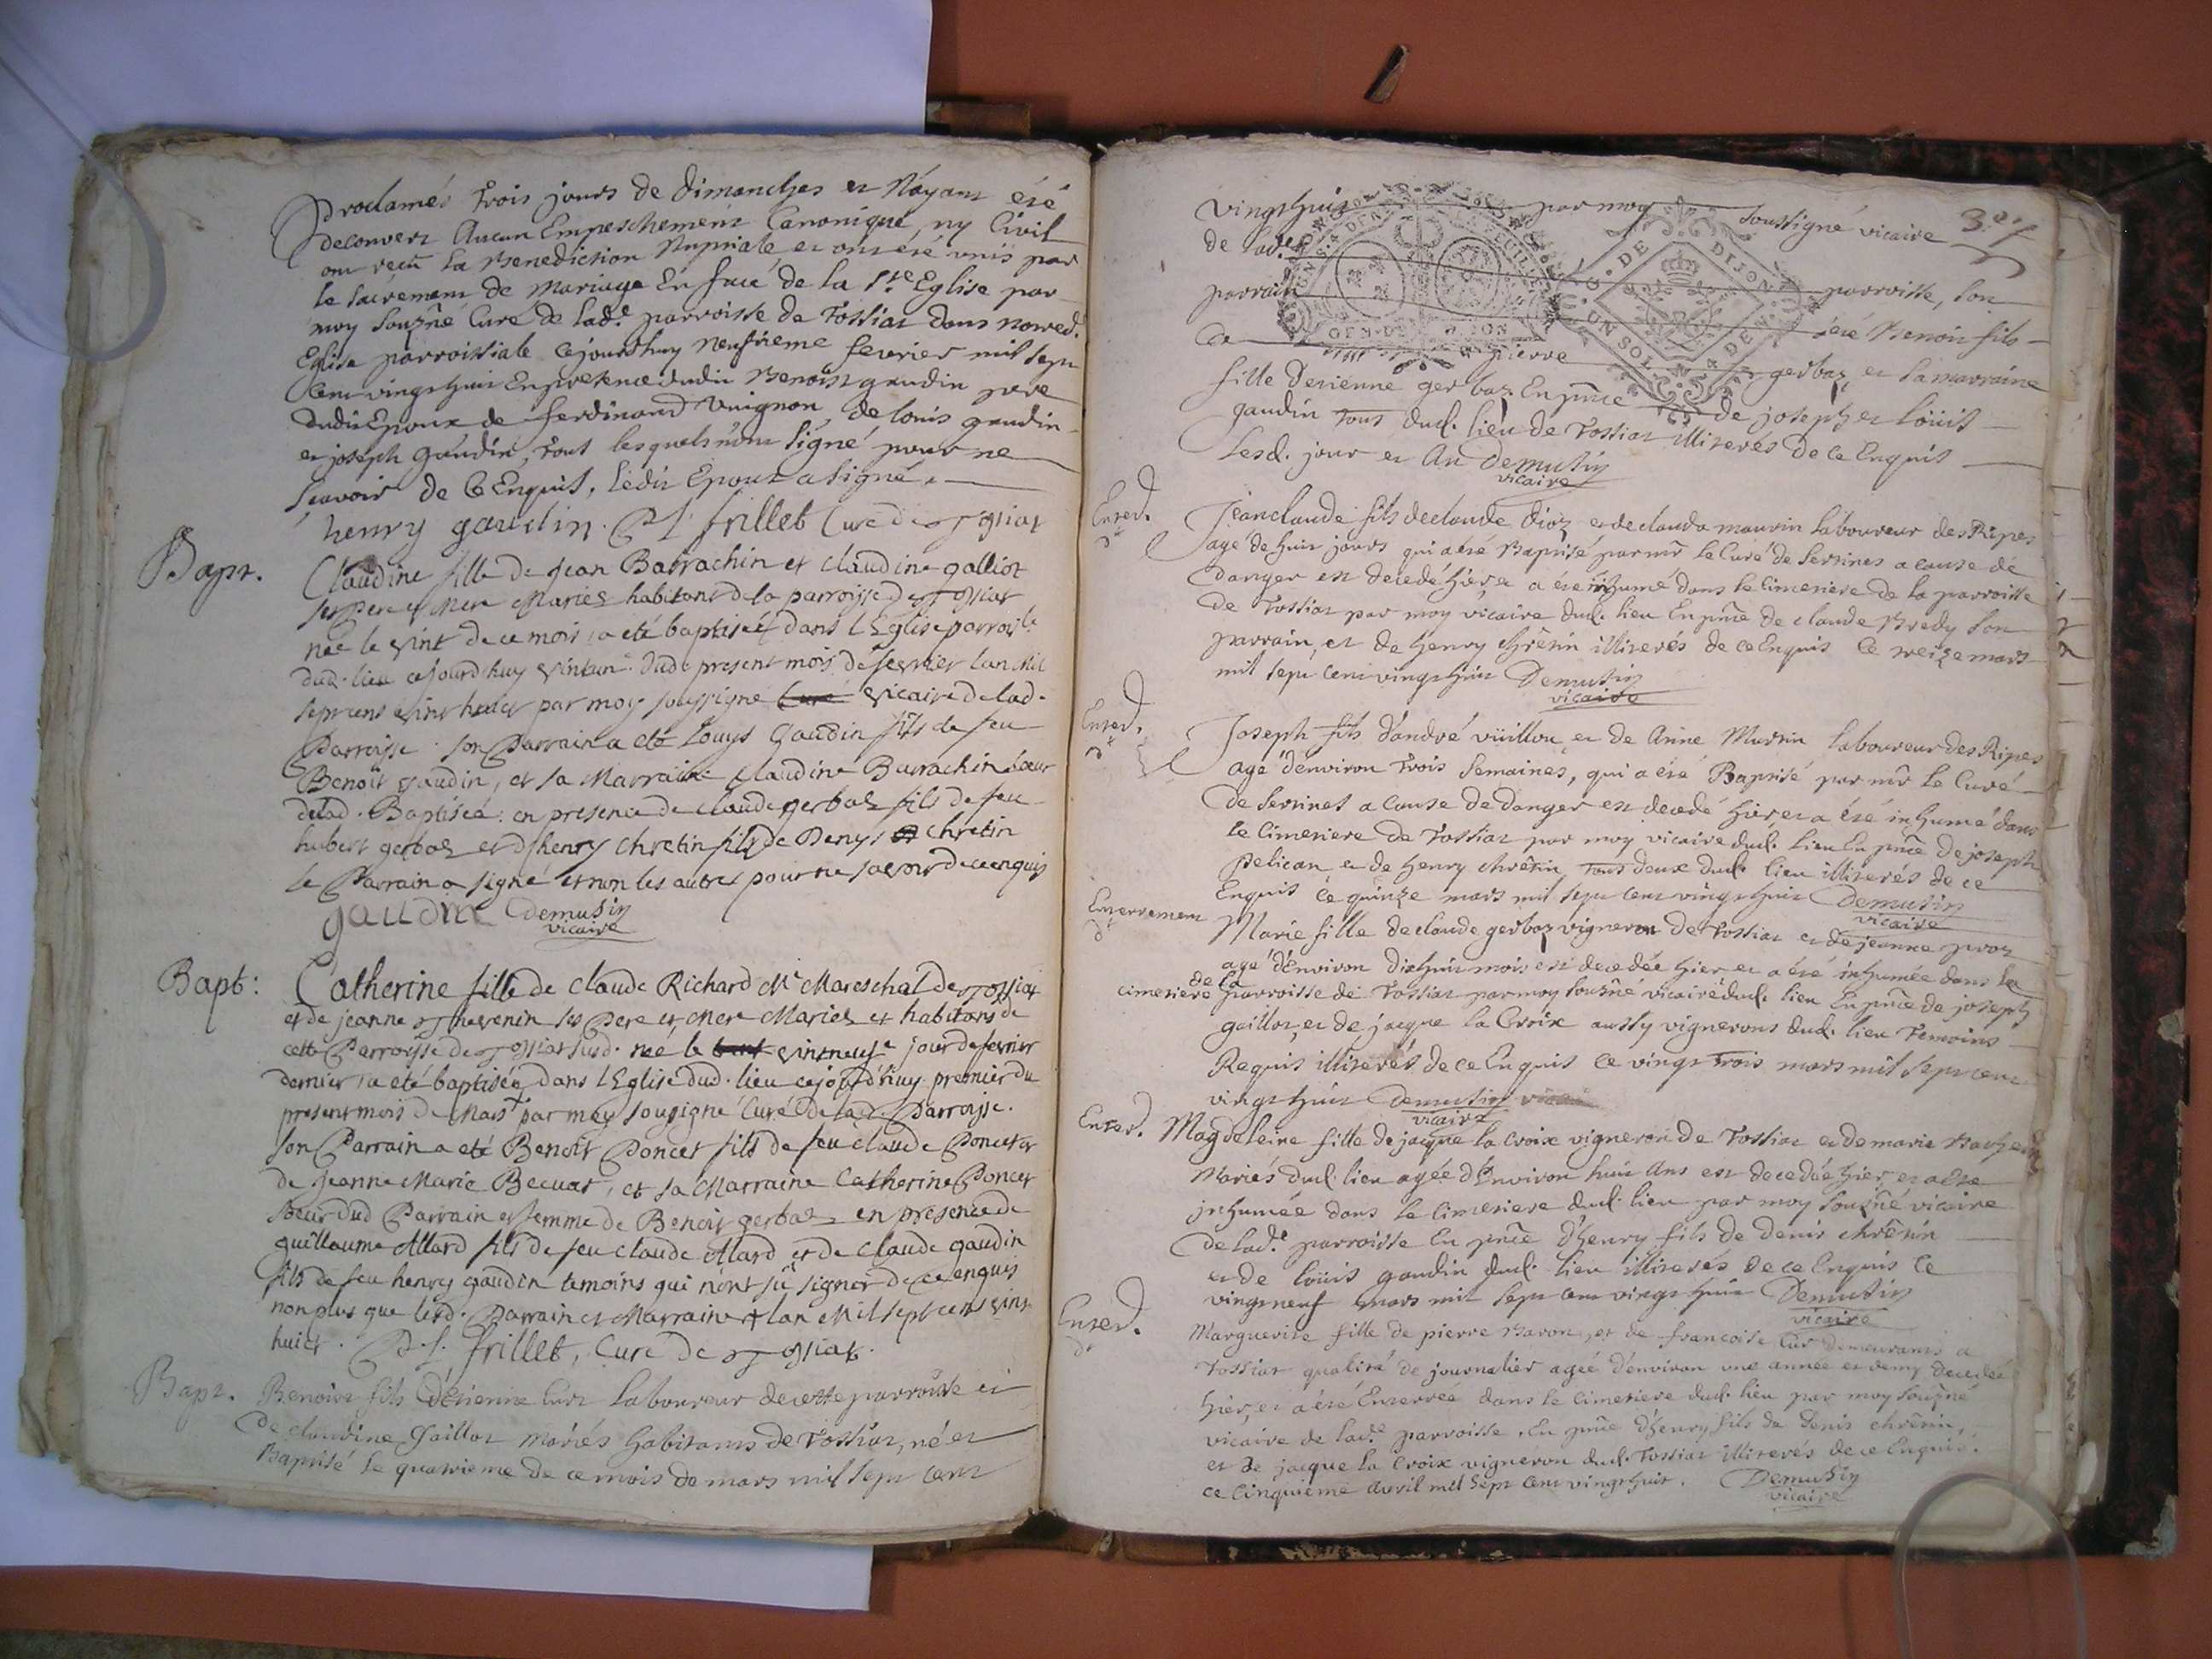 Proclamés trois jours de dimanches et N'ayant été
decouvert Aucun Empeschement Canonique, ny Civil
ont reçû la Benediction Nuptiale, et ont été unis par
le Sacrement de Mariage En face de la Ste Eglise par
moy Sousñé Curé de lade parroisse de Tossiat dans nôtred.
Eglise parroissiale cejourdhuy neufvieme fevrier mil sept
Cent vingt huit En presence dudit Benoist gaudin pere
dudit Epoux de ferdinand Vuignon, de louis gaudin
et joseph gaudin, tous lesquels n'ont signé pour ne
sçavoir de Ce Enquis, Ledit Epoux a signé.
henry gaudin. frillet Curé de Tossiat
Bapt.
Claudine fille de Jean Barrachin et Claudine galliot
ses Pere et Mere Mariez habitans de la parroisse de Tossiat
née le vint de ce mois, a eté baptisée dans l'Eglise parroisle
dud. lieu cejourd'huy vintun dud. present mois de fevrier l'an Mil
sept cens vint huict par moy soussigné Curé vicaire de lad.
Parroisse. son Parrain a eté Louys Gaudin fils de feu
Benoît Gaudin, et sa Marraine Claudine Barrachin soeur
de lad. Baptisée: en presence de Claude gerbaz fils de feu
hubert gerbaz et d'henry chretin fils de Denys chretin
le Parrain a signé et non les autres pour ne savoir de ce enquis
gaudin Demusin
vicaire
Bapt:
Catherine fille de Claude Richard Me Mareschal de Tossiat
et de jeanne Thevenin ses Pere et Mere Mariez et habitans de
cette Parroisse de Tossiat susd. née le vintneufe jour de fevrier
dernier, a eté baptisée dans l'Eglise dud. lieu cejourd'huy premier du
present mois de Mars par moy sousigné Curé de lad. Parroisse.
son Parrain a eté Benoît Poncet fils de feu Claude Poncet et
de Jeanne Marie Becuat, et sa Marraine Catherine Poncet
soeur dud Parrain et femme de Benoit gerbaz en presence de
guillaume Allard fils de feu Claude Allard et de Claude gaudin
fils de feu henry gaudin temoins qui n'ont sû signer de ce enquis
non plus que lesd. Parrain et Marraine l'an Mil sept cens vint
huict. frillet, Curé de Tossiat.
Bapt.
Benoist fils d'Etienne Curt laboureur de cette parroisse et
de claudine Gaillot mariés habitans de Tossiat, né et
Baptisé le quatrieme de ce mois de mars mil sept cent
vingt huit par moy soussigné vicaire
de lade parroisse, son
parrain été Benoit fils
de pierre gerbaz, et sa marraine
fille d'etienne gerbaz En pñce de joseph et loüis
gaudin tous dud. lieu de Tossiat illiterés de ce Enquis
Lesd. jour et An Demusin
vicaire
GEN. DE DIJON
G. DE DIJON
UN SOL
Enter.
Jeanclaude fils de claude dioz et de clauda maurin laboureur des Ripes
age de huit jours qui a été Baptisé par mr le Curé de Sertines a cause de
danger est decedé hier, et a été inhumé dans le cimetiere de la parroisse
de Tossiat par moy vicaire dud. lieu En pñce de claude Bredy son
parrain, et de henry chrêtin illiterés de ce Enquis Ce treize mars
mil sept cent vingt huit Demusin
vicaire
Enter.
Joseph fils d'andré vüillon et de Anne Murtin laboureur des Ripes
agé d'environ trois semaines, qui a été Baptisé par mr le Curé
de Sertines a cause de danger est decedé hier, et a été inhumé dans
le cimetiere de Tossiat par moy vicaire dud. lieu En pñce de joseph
pelican et de henry chrêtin, tous deux dud. lieu illiterés de ce
Enquis ce quinze mars mil sept cent vingt huit Demusin
vicaire
Enterrement
Marie fille de claude gerbaz vigneron de Tossiat et de jeanne proz
agé d'Environ dixhuit mois est decedée hier, et a été inhumée dans la
de la
cimetiere parroisse de Tossiat par moy sousñé vicaire dud. lieu En pñce de joseph
gaillot, et de jacque la Croix aussy vignerons dud. lieu Temoins
Requis illiterés de ce Enquis ce vingt trois mars mil sept cent
vingt huit Demusin
vicaire
Enter.
Magdeleine fille de jacque la Croix vigneron de Tossiat et de marie
Mariés dud. lieu agée d'Environ huit Ans est decedée hier, et a été
jnhumée dans le cimetiere dud. lieu par moy sousñé vicaire
de lade parroisse En pñce d'henry fils de denis chrêtin
et de loüis gaudin dud. lieu illiterés de ce Enquis Ce
vingt neuf mars mil sept cent vingt huit Demusin
vicaire
Enter.
Marguerite fille de pierre Baron, et de francoise Cur demeurants a
Tossiat qualité de journalier agée d'environ une année et demy decedée
hier, et a été Enterrée dans le cimetiere dud. lieu par moy sousñé
vicaire de lade parroisse, En pñce d'henry fils de denis chrêtin,
et de jacque la Croix vigneron dud. Tossiat illiterés de ce Enquis.
ce Cinquieme avril mil sept cent vingt huit. Demusin
vicaire